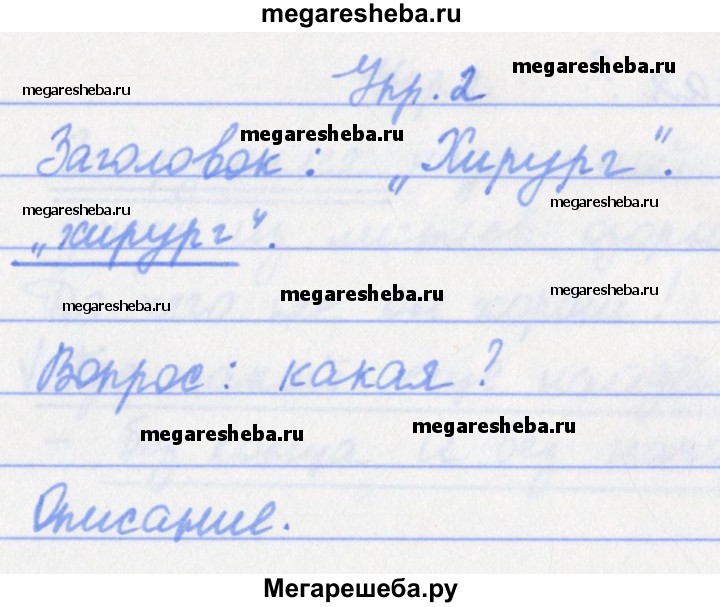 megaresheba.ru
Упр. 2
megaresheba.ru
megaresheba.ru
Заголовок: „Хирург“.
megaresheba.ru
megaresheba.ru
megaresheba.ru
„хирург“.
megaresheba.ru
megaresheba.ru
megaresheba.ru
Вопрос: какая?
megaresheba.ru
megaresheba.ru
Описание.
Мегарешеба.ру